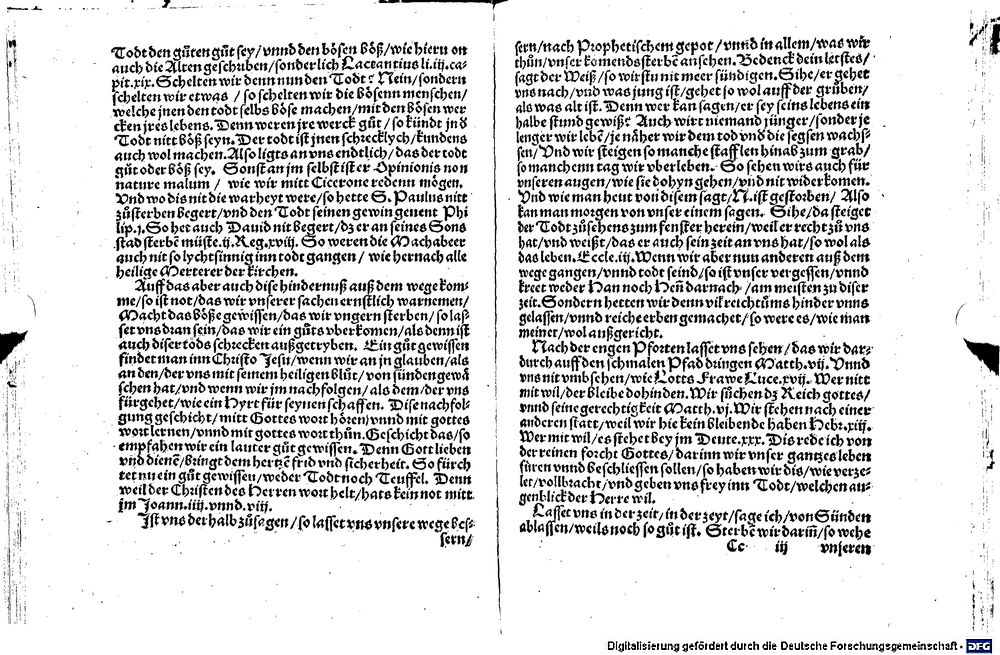 Todt den gůten gůt sey/vnnd den bösen böß/wie hieru on
auch die Alten geschriben/sonderlich Lactantius li.iij.ca-
pit.xix. Schelten wir denn nun den Todt? Nein/sondern
schelten wir etwas / so schelten wir die bösenn menschen/
welche jnen den todt selbs böse machen/mit den bösen wer
cken jres lebens. Denn weren jre werck gůt / so kündt jn d
Todt nitt böß seyn. Der todt ist jnen schrecklych/kundens
auch wol machen. Also ligts an vns endtlich / das der todt
gůt oder böß sey. Sonst an jm selbst ist er Opinionis non
nature malum / wie wir mitt Cicerone redenn mögen.
Vnd wo dis nit die warheyt were/so hette S. Paulus nitt
zůsterben begert/vnd den Todt seinen gewin genent Phi
lip.j. So het auch Dauid nit begert/dz er an seines Sons
stad sterbē müste.ij.Reg.xviij. So weren die Machabeer
auch nit so lychtsinnig inn todt gangen / wie hernach alle
heilige Merterer der kirchen.
Auff das aber auch dise hindernuß auß dem wege kom-
me/so ist not/das wir vnserer sachen ernstlich warnemen/
Macht das böße gewissen/das wir vngern sterben/so las-
set vns dran sein/das wir ein gůts vberkomen/als denn ist
auch diser tods schrecken außgetryben. Ein gůt gewissen
findet man inn Christo Jesu/wenn wir an jn glauben/als
an den/der vns mit seinem heiligen blůt/von sünden gewä
schen hat/vnd wenn wir jm nachfolgen/als dem/der vns
fürgehet/wie ein Hyrt für seynen schaffen. Dise nachfol-
gung geschicht/mitt Gottes wort hören/vnnd mit gottes
wort lernen/vnnd mit gottes wort thůn. Geschicht das/so
empfahen wir ein lauter gůt gewissen. Denn Gott lieben
vnd dienē/bringt dem hertzē frid vnd sicherheit. So fürch
tet nu ein gůt gewissen/weder Todt noch Teuffel. Denn
weil der Christen des Herren wort helt/hats kein not mitt
jm Joann.iiij.vnnd.viij.
Ist vns derhalb zůsagen/so lasset vns vnsere wege bes-
sern/
sern/nach Prophetischem gepot/vnnd in allem/was wir
thůn/vnser komends sterbē ansehen. Bedenck dein letstes/
sagt der Weiß/so wirstu nit meer sündigen. Sihe/er gehet
vns nach/vnd was jung ist/gehet so wol auff der grůben/
als was alt ist. Denn wer kan sagen/er sey seins lebens ein
halbe stund gewiß? Auch wirt niemand jünger/sonder je
lenger wir lebē/je näher wir dem tod vnd die segsen wachs-
sen/Vnd wir steigen so manche stafflen hinab zum grab/
so manchenn tag wir vberleben. So sehen wirs auch für
vnseren augen/wie sie dohyn gehen/vnd nit widerkomen.
Vnd wie man heut von disem sagt/N.ist gestorben/ Also
kan man morgen von vnser einem sagen. Sihe/da steiget
der Todt zůsehens zum fenster herein/weil er recht zů vns
hat/vnd weißt/das er auch sein zeit an vns hat/so wol als
das leben. Eccle.iij.Wenn wir aber nun anderen auß dem
wege gangen/vnnd todt seind/so ist vnser vergessen/vnnd
kreet weder Han noch Heñ darnach/am meisten zu diser
zeit. Sondern hetten wir denn vil reichtůms hinder vnns
gelassen/vnnd reiche erben gemachet/so were es/wie man
meinet/wol außgericht.
Nach der engen Pforten lasset vns sehen / das wir dar-
durch auff den schmalen Pfad dringen Matth.vij. Vnnd
vns nit vmbsehen/wie Lotts Frawe Luce.xvij. Wer nitt
mit wil/der bleibe dohinden. Wir sůchen dz Reich gottes/
vnnd seine gerechtigkeit Matth.vj. Wir stehen nach einer
anderen statt/weil wir hie kein bleibende haben Hebr.xiij.
Wer mit wil/es stehet bey jm Deute.xxx. Dis rede ich von
der reinen forcht Gottes/darinn wir vnser gantzes leben
füren vnnd beschliessen sollen/so haben wir dis/wie verze-
let/vollbracht/vnd geben vns frey inn Todt/welchen au-
genblick der Herre wil.
Lasset vns in der zeit/in der zeyt/sage ich/von Sünden
ablassen/weils noch so gůt ist. Sterbē wir dariñ/so wehe
Cc iij vnseren
Digitalisierung gefördert durch die Deutsche Forschungsgemeinschaft - DFG